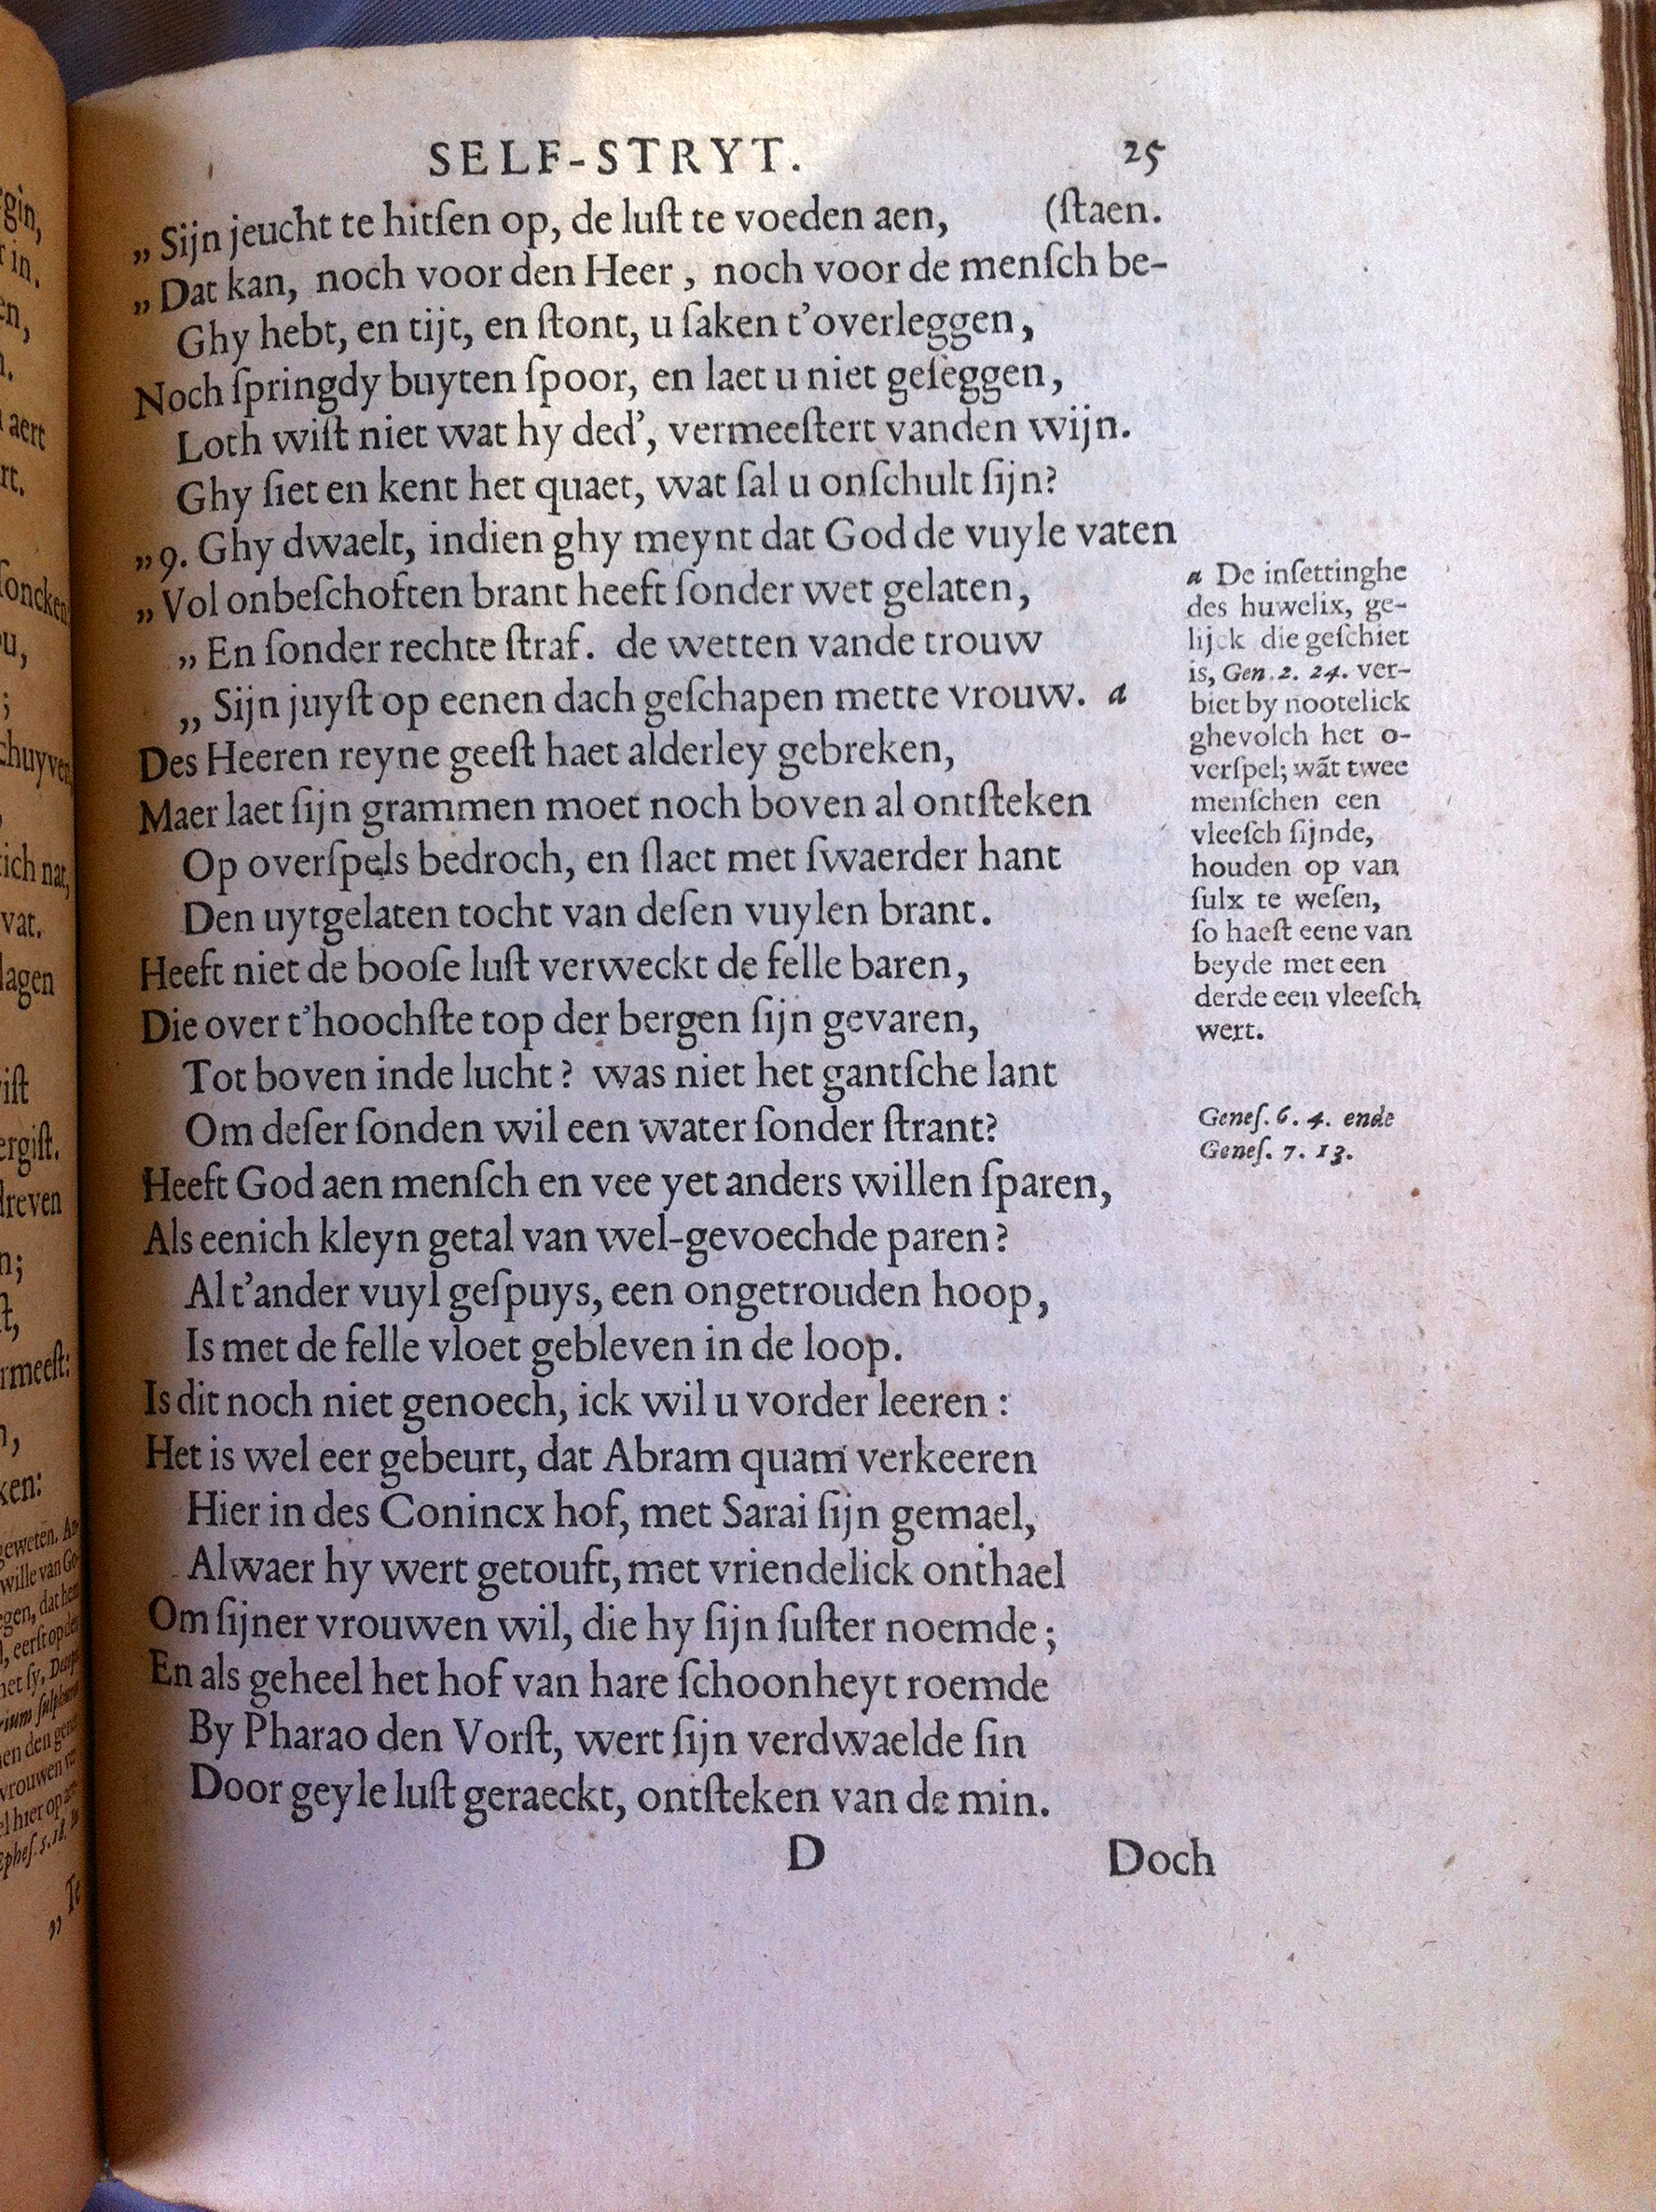 SELF-STRYT. 25
„Sijn jeucht te hitſen op, de luſt te voeden aen, (ſtaen.
„Dat kan, noch voor den Heer, noch voor de menſch be-
Ghy hebt, en tijt, en ſtont, u ſaken t’overleggen,
Noch ſpringdy buyten ſpoor, en laet u niet geſeggen,
Loth wiſt niet wat hy ded’, vermeeſtert vanden wijn.
Ghy ſiet en kent het quaet, wat ſal u onſchult ſijn?
„9. Ghy dwaelt, indien ghy meynt dat God de vuyle vaten
„Vol onbeſchoften brant heeft ſonder wet gelaten,
„En ſonder rechte ſtraf. de wetten vande trouw
„Sijn juyſt op eenen dach geſchapen mette vrouw. a
Des Heeren reyne geeſt haet alderley gebreken,
Maer laet ſijn grammen moet noch boven al ontſteken
Op overſpels bedroch, en ſlaet met ſwaerder hant
Den uytgelaten tocht van deſen vuylen brant.
Heeft niet de booſe luſt verweckt de felle baren,
Die over t’hoochſte top der bergen ſijn gevaren,
Tot boven inde lucht? was niet het gantſche lant
Om deſer ſonden wil een water ſonder ſtrant?
Heeft God aen menſch en vee yet anders willen ſparen,
Als eenich kleyn getal van wel-gevoechde paren?
Al t’ander vuyl geſpuys, een ongetrouden hoop,
Is met de felle vloet gebleven in de loop.
Is dit noch niet genoech, ick wil u vorder leeren:
Het is wel eer gebeurt, dat Abram quam verkeeren
Hier in des Conincx hof, met Sarai ſijn gemael,
Alwaer hy wert getouft, met vriendelick onthael
Om ſijner vrouwen wil, die hy ſijn ſuſter noemde;
En als geheel het hof van hare ſchoonheyt roemde
By Pharao den Vorſt, wert ſijn verdwaelde ſin
Door geyle luſt geraeckt, ontſteken van de min.
D Doch
a De inſettinghe
des huwelix, ge-
lijck die geſchiet
is, Gen. 2. 24. ver-
biet by nootelick
ghevolch het o-
verſpel; wãt twee
menſchen een
vleeſch ſijnde,
houden op van
ſulx te weſen,
ſo haeſt eene van
beyde met een
derde een vleeſch
wert.
Geneſ. 6. 4. ende
Geneſ. 7. 13.